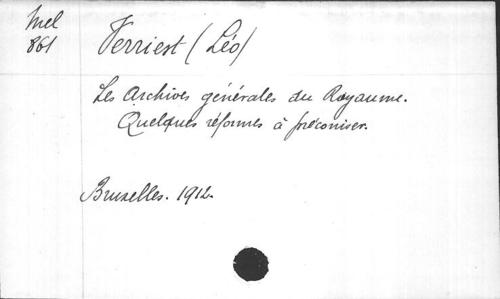 Mel
861
Verriest (Léo)
Les Archives générales du Royaume.
Quelques réformes à préconiser.
Bruxelles. 1912.